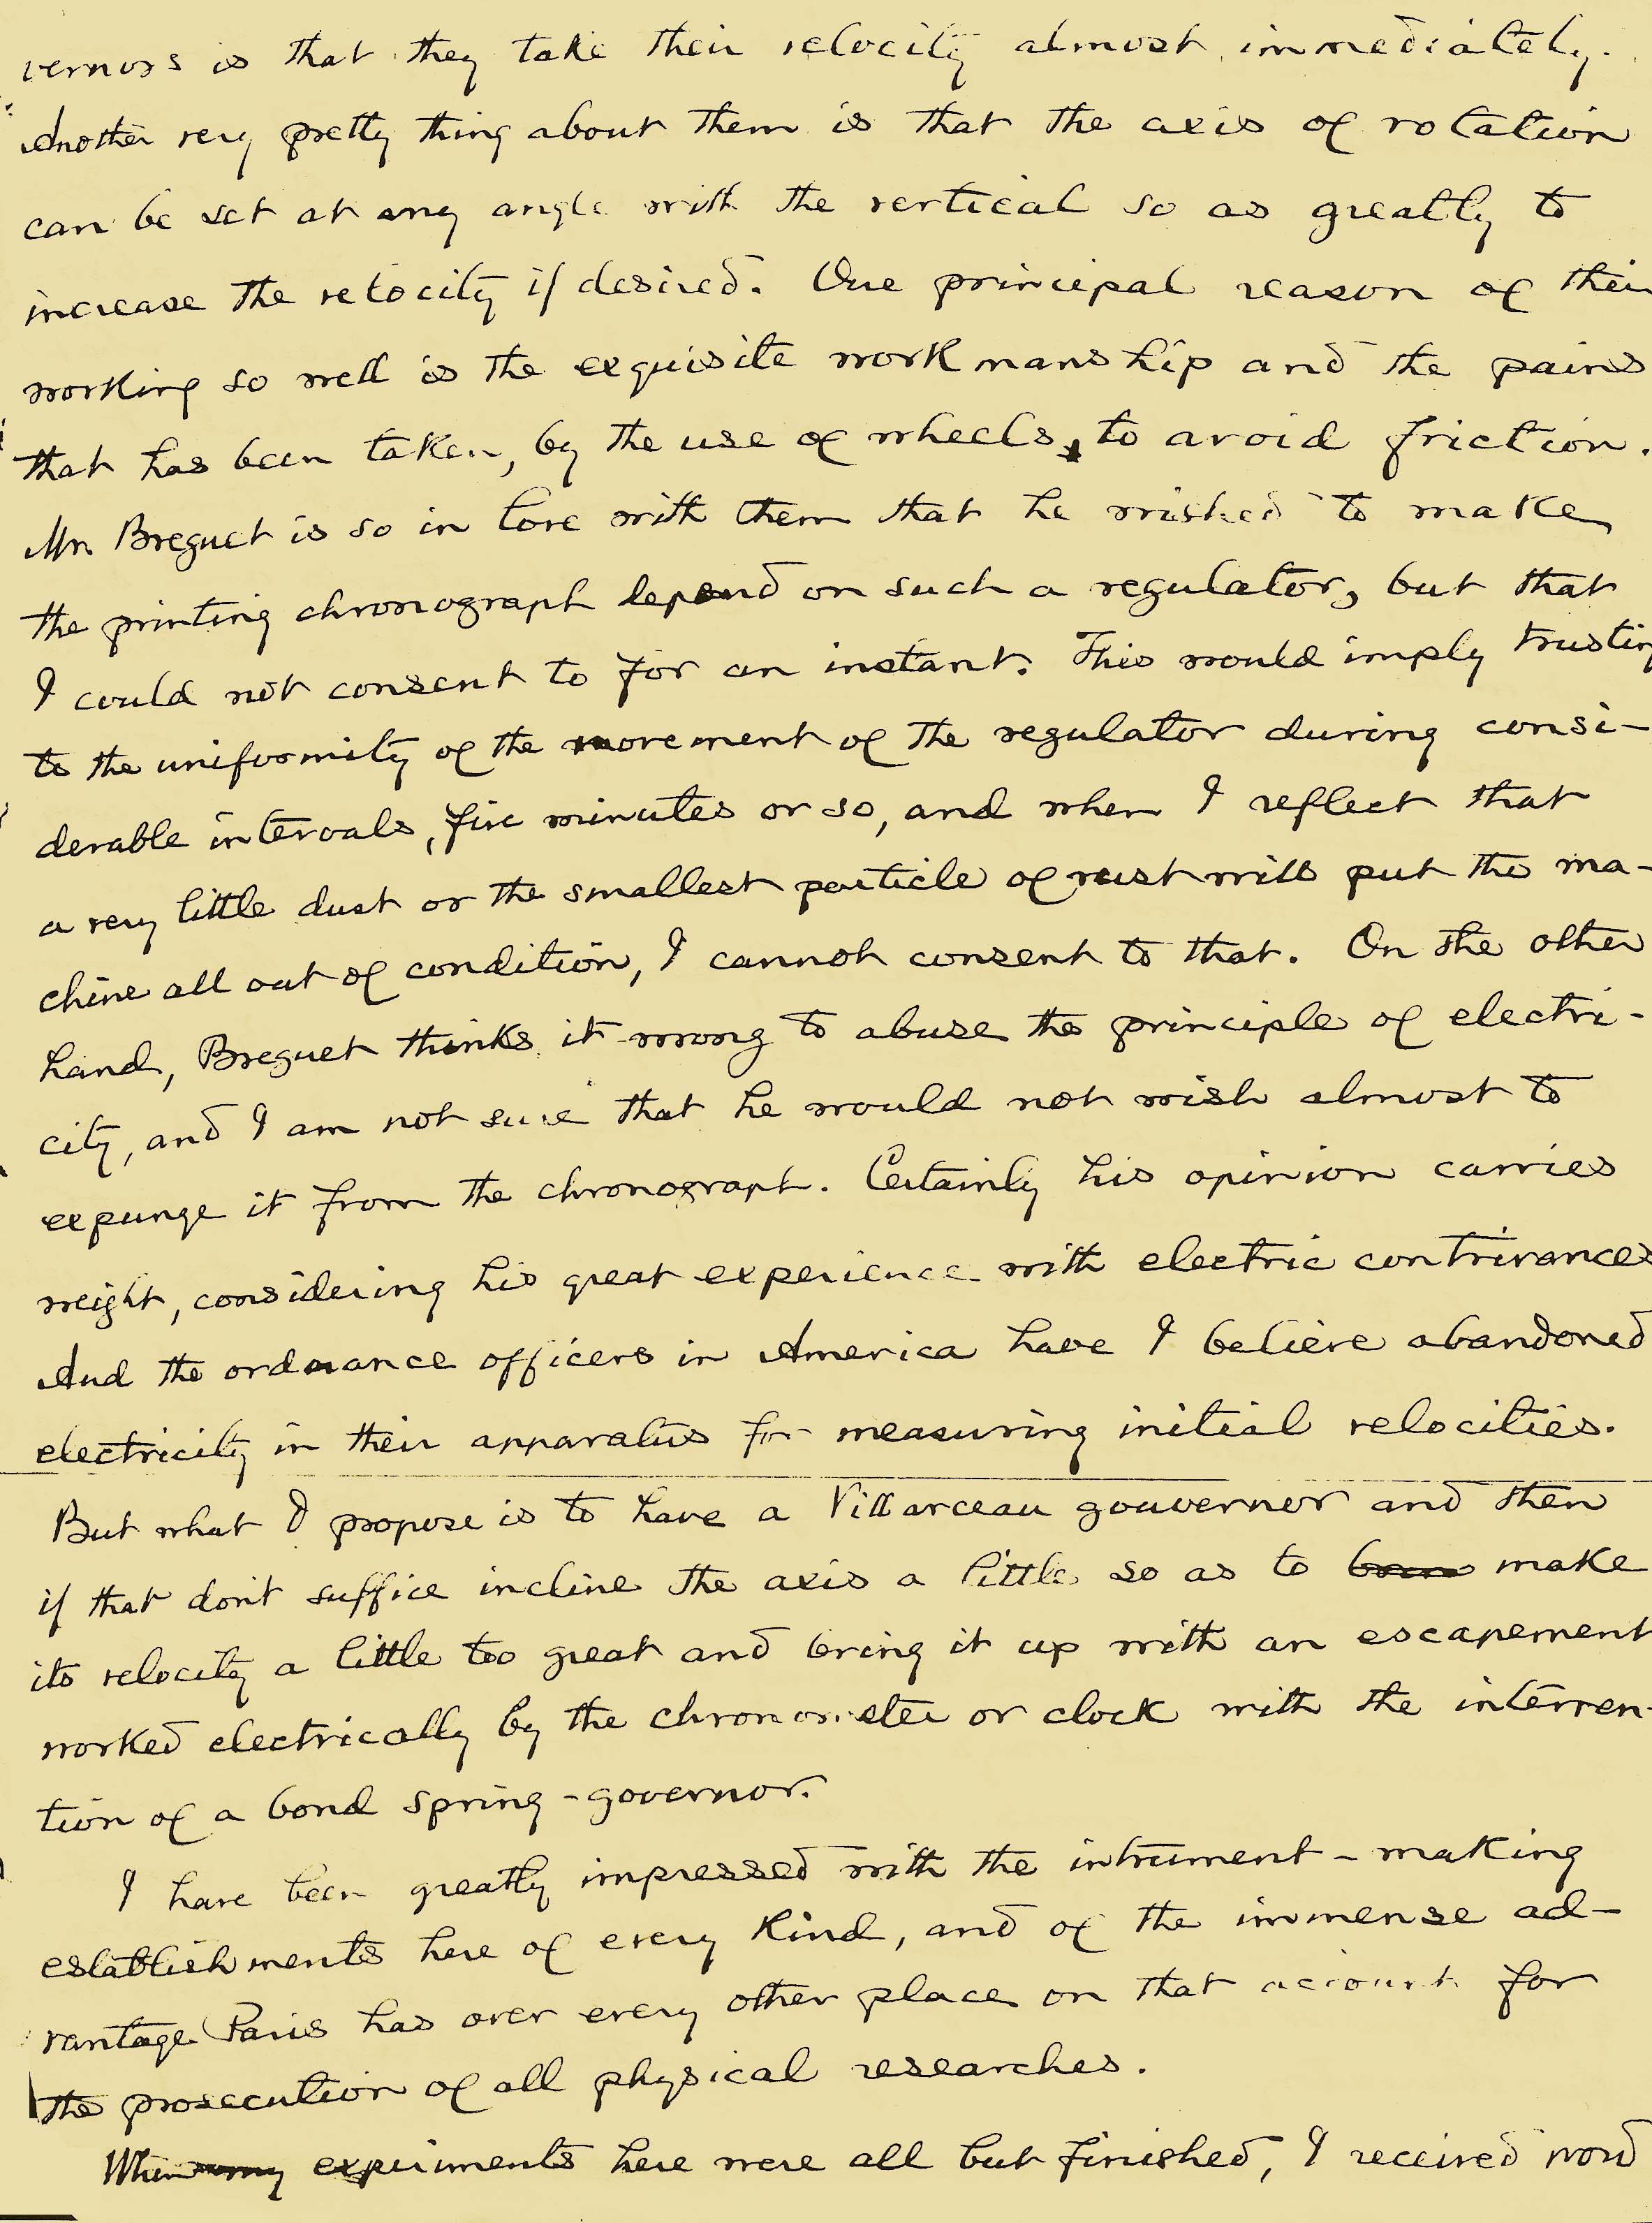 vernors is that they take their velocity almost immediately.
Another very pretty thing about them is that the axis of rotation
can be set at any angle with the vertical so as greatly to
increase the velocity if desired. One principal reason of their
working so well is the exquisite workmanship and the pains
that has been taken, by the use of wheels, to avoid friction.
Mr. Breguet is so in love with them that he wished to make
the printing chronograph depend on such a regulator, but that
I could not consent to for an instant. This would imply trusting
to the uniformity of the movement of the regulator during consi-
derable intervals, five minutes or so, and when I reflect that
a very little dust or the smallest particle of rust will put the ma-
chine all out of condition, I cannot consent to that. On the other
hand, Breguet thinks it wrong to abuse the principle of electri-
city, and I am not sure that he would not wish almost to
expunge it from the chronograph. Certainly his opinion carries
weight, considering his great experience with electric contrivances
And the ordnance officers in America have I believe abandoned
electricity in their apparatus for measuring initial velocities.
But what I propose is to have a Villarceau gouvernor and then
if that don't suffice incline the axis a little so as to make
its velocity a little too great and bring it up with an escapement
worked electrically by the chronometer or clock with the interven-
tion of a bond spring-governor.
I have been greatly impressed with the intrument-making
establishments here of every kind, and of the immense ad-
vantage Paris has over every other place on that account for
the prosecution of all physical researches.
When my experiments here were all but finished, I received word